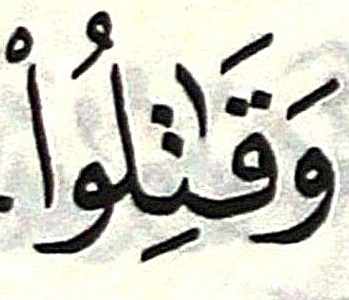 وَقَٰتِلُوا۟